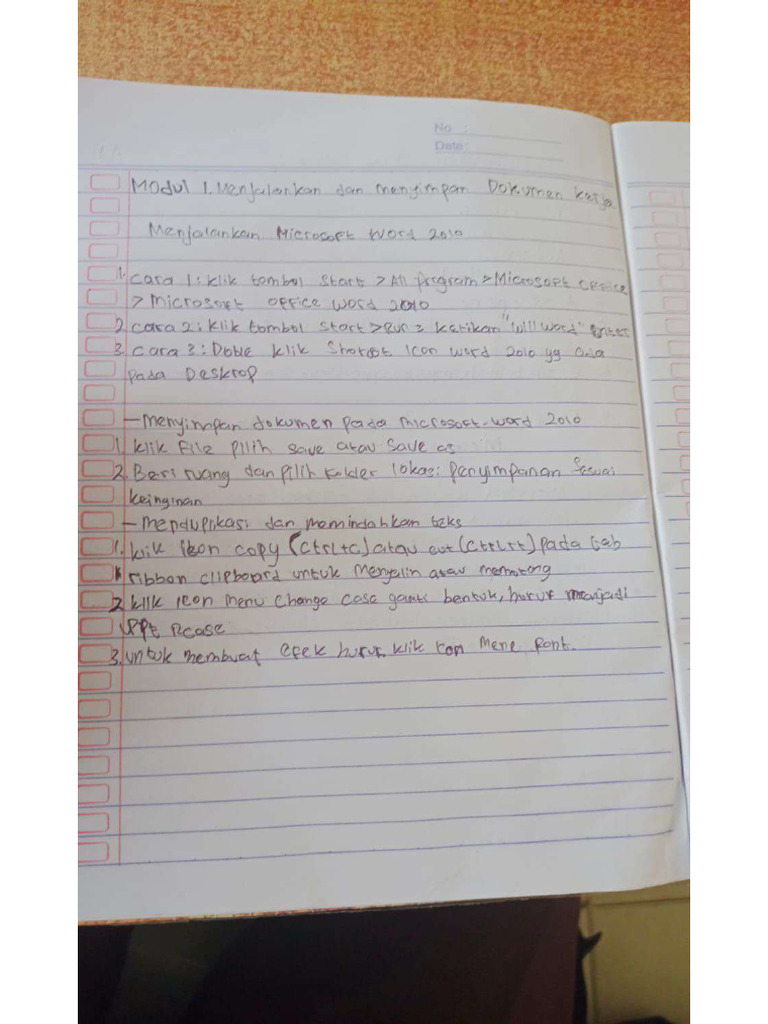 No :
Date:
Modul 1. Menjalankan dan menyimpan Dokumen kerja
Menjalankan Microsoft Word 2010
1. cara 1: klik tombol Start > All program > Microsoft Office
> Microsoft Office Word 2010
2. cara 2: klik tombol Start > Run > ketikan "will word" enter
3. Cara 3: Doble klik Icon Word 2010 yg ada
pada Desktop
- menyimpan dokumen pada microsoft-word 2010
1. klik File pilih save atau Save as
2. Beri ruang dan pilih folder lokasi penyimpanan Sesuai
keinginan
- menduplikasi dan memindahkan teks
1. klik icon copy (Ctrl+c) atau cut (Ctrl+) pada tab
ribbon clipboard untuk menyalin atau memotong
2. klik icon menu Change case ganti bentuk, huruf menjadi
UPPERcase
3. untuk membuat efek huruf, klik Icon Mene Font.